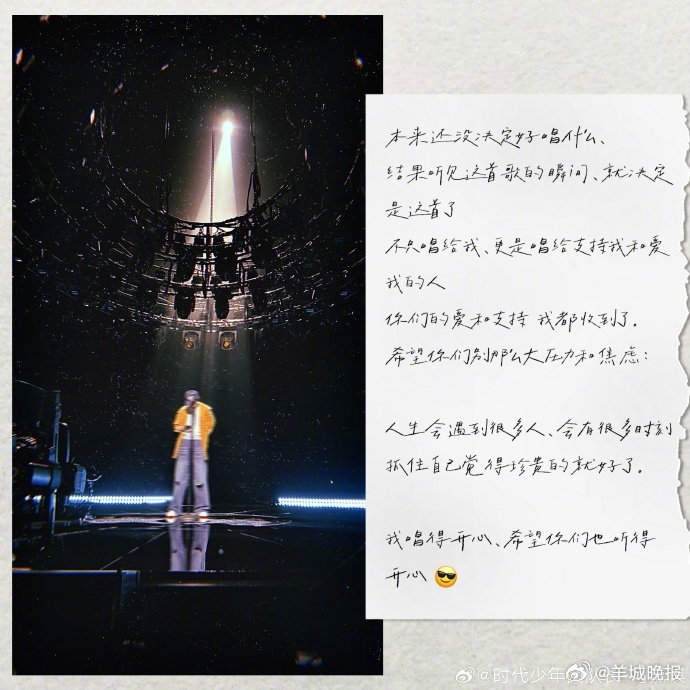 本来还没决定好唱什么、
结果听见这首歌的瞬间、就决定
是这首了
不只唱给我、更是唱给支持我和爱
我的人
你们的爱和支持 我都收到了.
希望你们别那么大压力和焦虑:
人生会遇到很多人、会有很多时刻
抓住自己觉得珍贵的就好了.
我唱得开心、希望你们也听得
开心 😎
@时代少年
@羊城晚报